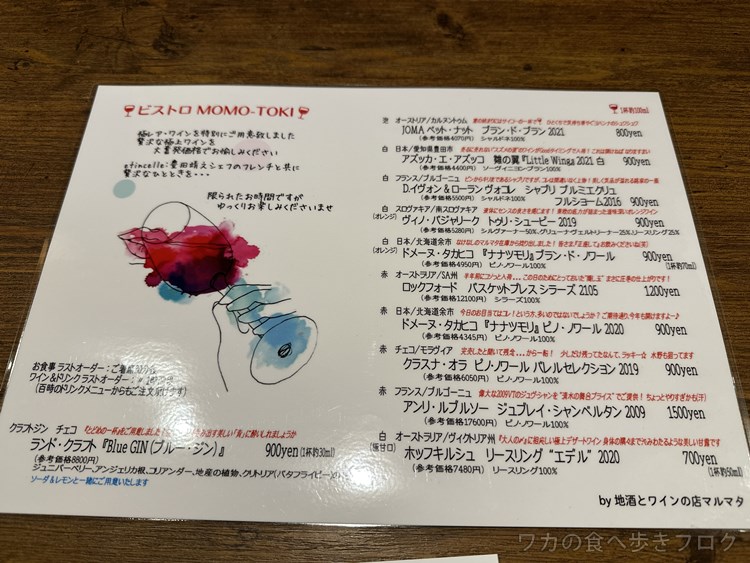 ビストロ MOMO-TOKI
極レア・ワインを特別にご用意致しました
贅沢な極上ワインを
大算発価格でお愉しみください
etincelle:豊田晴えシェフのフレンチと共に
贅沢なひとときを・・・
限られたお時間ですが
ゆっくりお楽しみくださいませ
お食事 ラストオーダー:
ワイン&ドリンクラストオーダー:
(百時のドリンクメニューからもご注文頂けます)
クラフトジン チェコ
ランド・クラフト『Blue GIN(ブルー・ジン)』 900yen(1杯30ml)
(参考価格8800円)
ジュニパーベリー、アンジェリカ根、コリアンダー、地産の植物、クリトリア(バタフライピー)
ソーダ&レモンと一緒にご用意いたします
1杯約100ml
泡 オーストリア/カルヌントゥム
JOMA ペット・ナット ブラン・ド・ブラン 2021 800yen
(参考価格4070円) シャルドネ100%
白 日本/愛知県豊田市
アズッカ・エ・アズッコ 雛の翼『Little Wings 2021 白 900yen
(参考価格4400円) ソーヴィニヨン・ブラン100%
白 フランス/ブルゴーニュ
D.イヴォン&ローラン ヴォコレ シャブリ プルミエクリュ
(参考価格5500円) シャルドネ100% フルショーム2016 900yen
白 スロヴァキア/南スロヴァキア
(オレンジ) ヴィノ・バジャリーク トゥリ・シューピー 2019 900yen
(参考価格5280円) シルヴァーナー50%、グリューナヴェルトリーナー25%、リースリング25%
白 日本/北海道余市
(オレンジ) ドメーヌ・タカヒコ『ナナツモリ』ブラン・ド・ノワール 900yen
(参考価格4950円) ピノ・ノワール100% (1杯約70ml)
赤 オーストラリア/SA州
ロックフォード バスケットプレス シラーズ 2105 1200yen
(参考価格12100円) シラーズ100%
赤 日本/北海道余市 今日のお目当てはコレ!という方、多いのではないでしょうか?ご期待通り今年も開けますよ~♪
ドメーヌ・タカヒコ『ナナツモリ』ピノ・ノワール 2020 900yen
(参考価格4345円) ピノ・ノワール100%
赤 チェコ/モラヴィア 完売したと聞いて残念・・・から一転! 少しだけ残ってたなんて、ラッキー☆ 水野も狙ってます
クラスナ・オラ ピノ・ノワール バレルセレクション 2019 900yen
(参考価格6050円) ピノ・ノワール100%
赤 フランス/ブルゴーニュ 偉大な2009VTのジュヴシャンを"清水の舞台プライス"でご提供! ちょっとやりすぎかも(汗)
アンリ・ルブルソー ジュブレイ・シャンベルタン 2009 1500yen
(参考価格17600円) ピノ・ノワール100%
白 オーストラリア/ヴィクトリア州 『大人のㇺ』に相応しい極上デザートワイン
(極甘口) ホッフキルシュ リースリング "エデル" 2020 700yen
(参考価格7480円) リースリング100% (1杯約50ml)
by 地酒とワインの店マルマタ
ワカの食べ歩きブログ